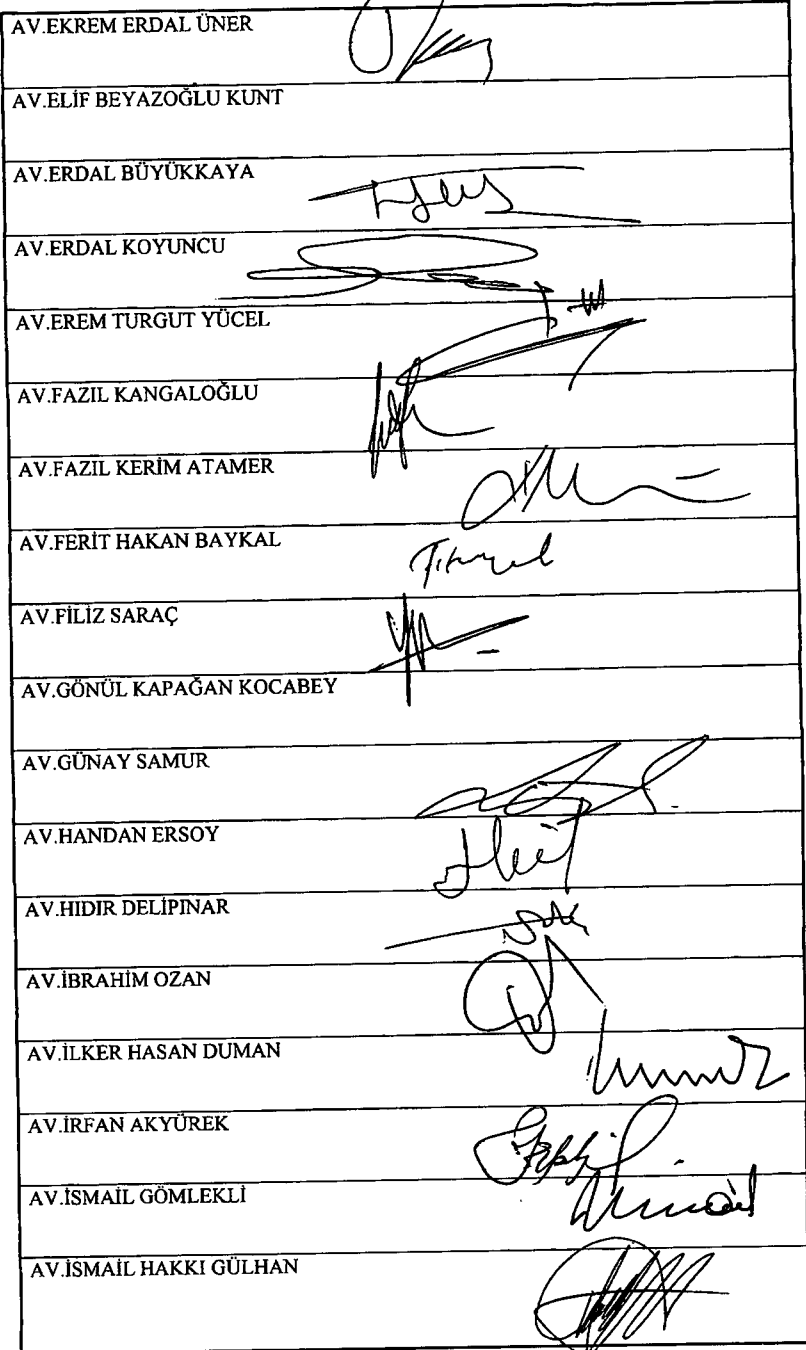 AV.EKREM ERDAL ÜNER
AV.ELİF BEYAZOĞLU KUNT
AV.ERDAL BÜYÜKKAYA
AV.ERDAL KOYUNCU
AV.EREM TURGUT YÜCEL
AV.FAZIL KANGALOĞLU
AV.FAZIL KERİM ATAMER
AV.FERİT HAKAN BAYKAL
AV.FİLİZ SARAÇ
AV.GÖNÜL KAPAĞAN KOCABEY
AV.GÜNAY SAMUR
AV.HANDAN ERSOY
AV.HIDIR DELİPINAR
AV.İBRAHİM OZAN
AV.İLKER HASAN DUMAN
AV.İRFAN AKYÜREK
AV.İSMAİL GÖMLEKLİ
AV.İSMAİL HAKKI GÜLHAN